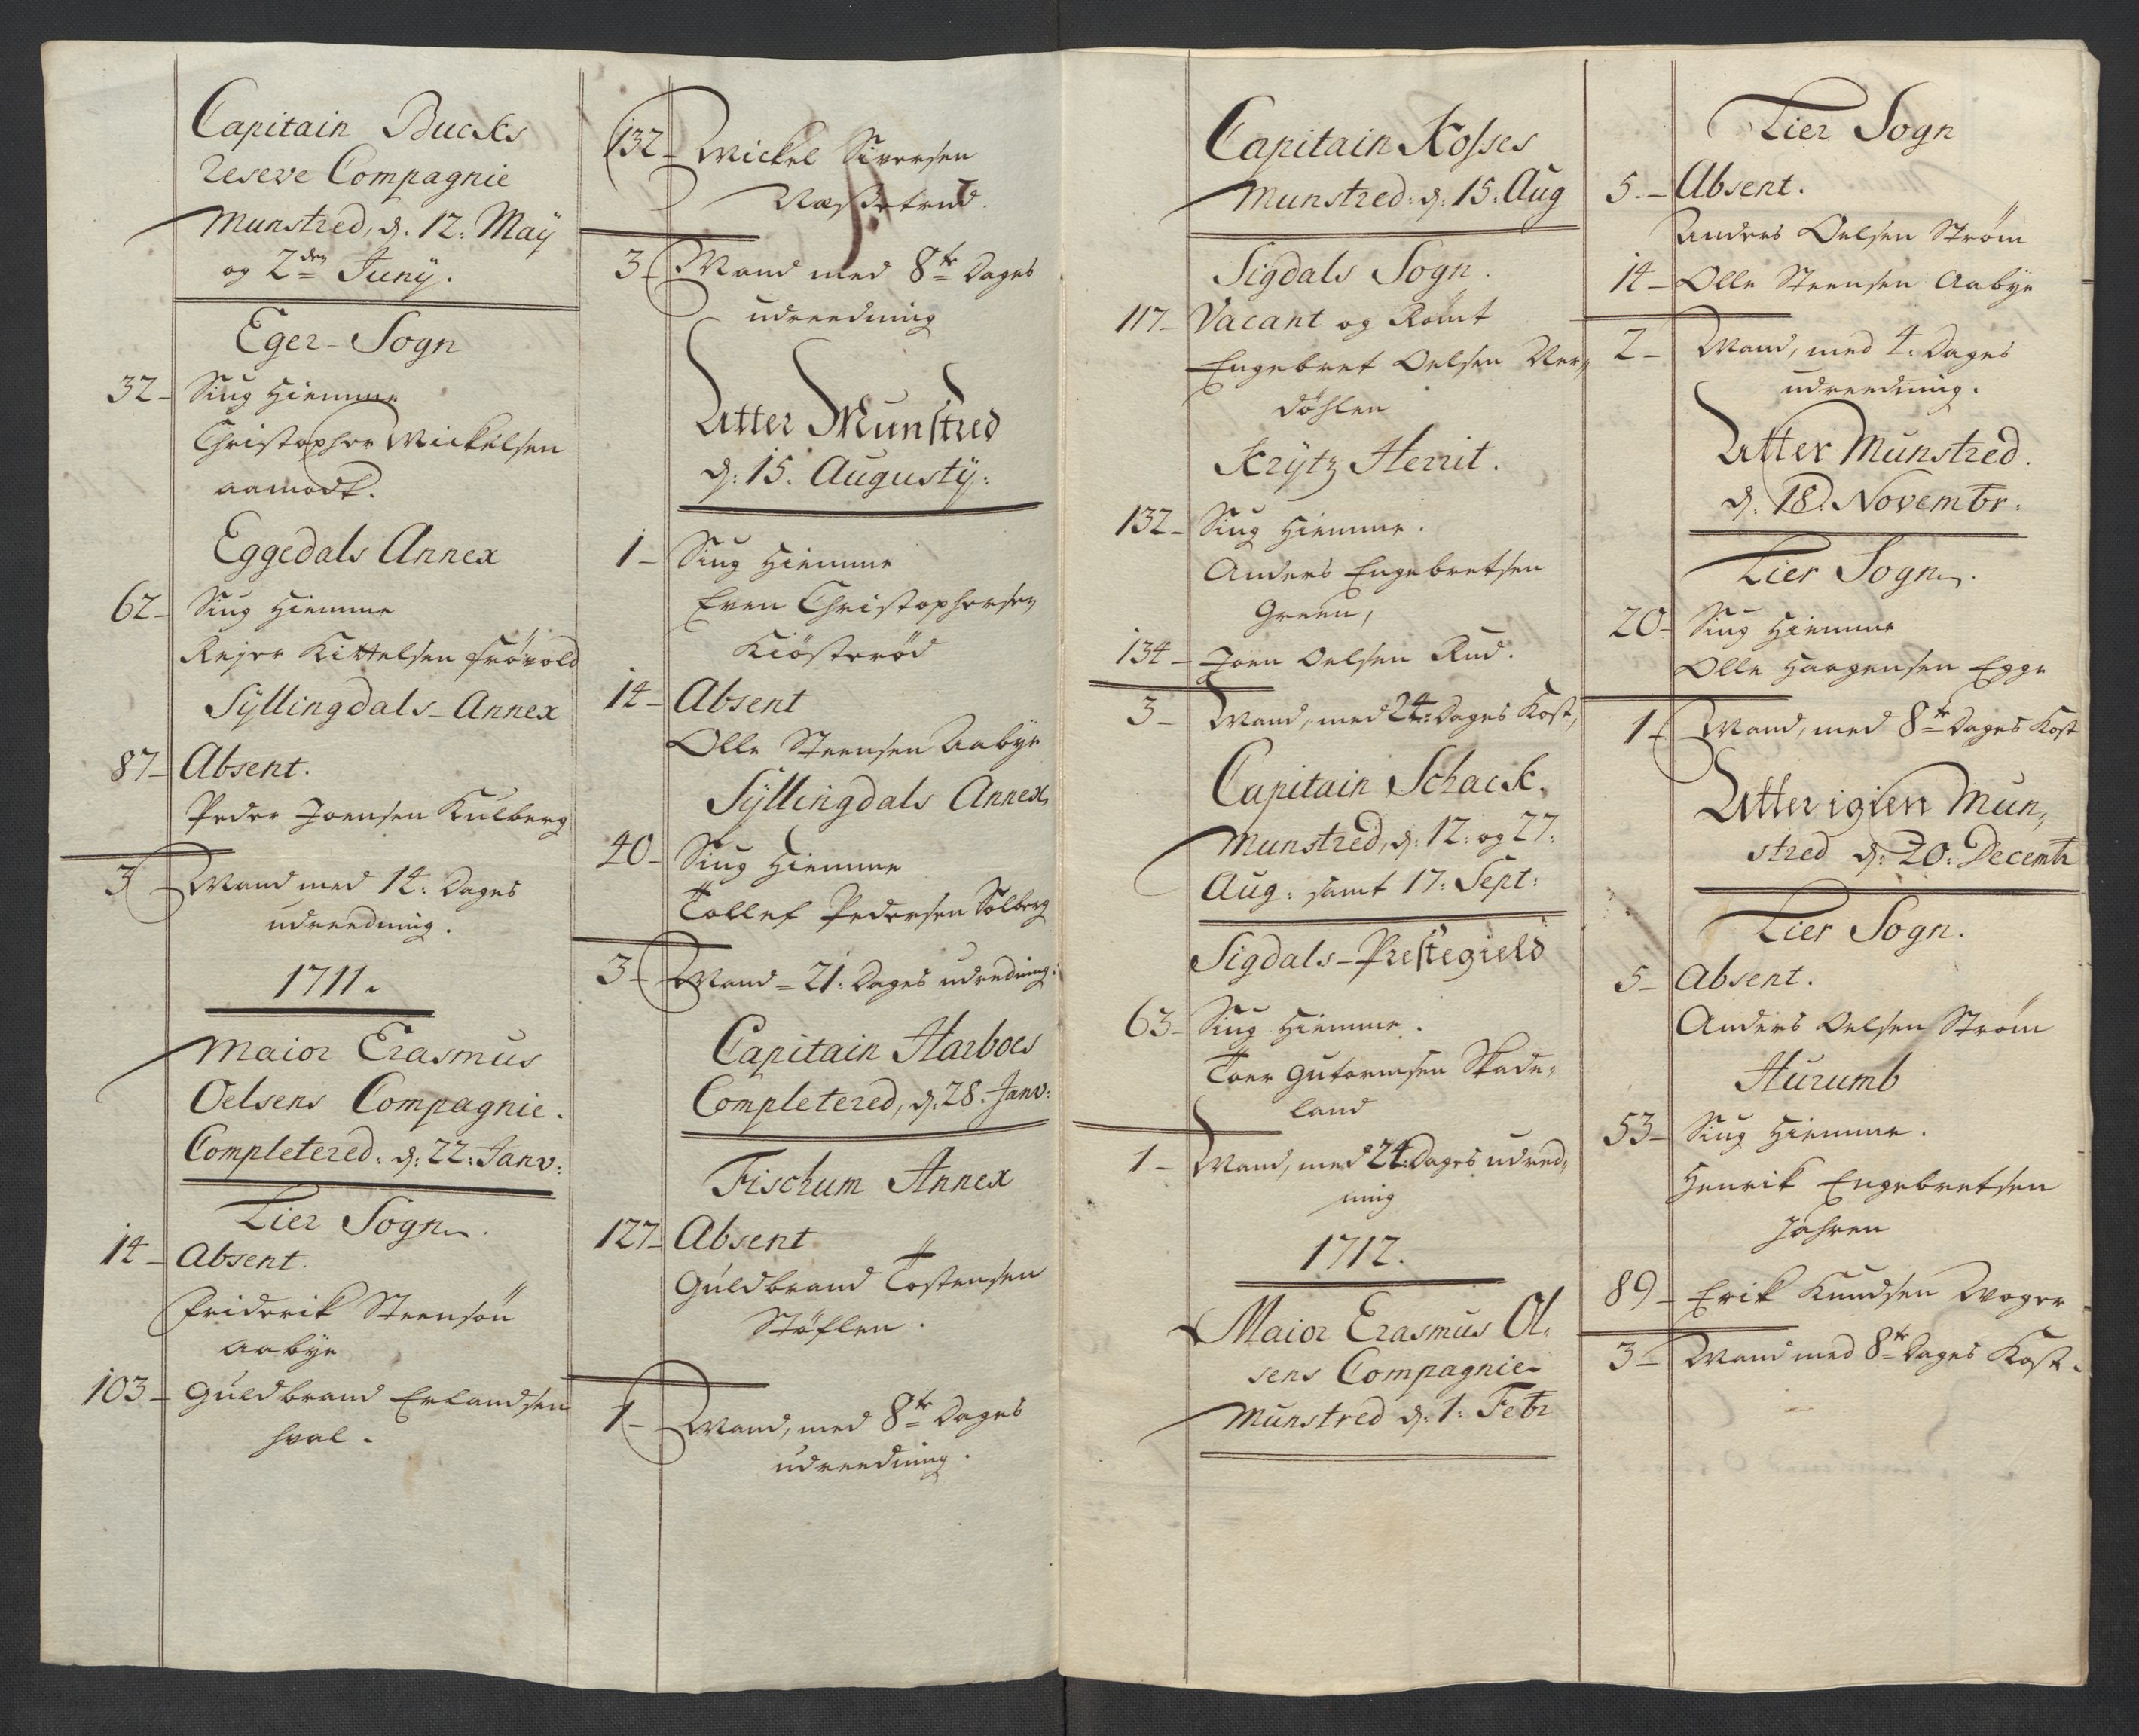 Capitain Bucks
reseve Compagnie
Munstred, d. 12. Maÿ
og 2den Junÿ.
Eger-Sogn
32 - Siug hiemme
Christopher Mickelsen
Aamodt.
Eggedals Annex
62 - Siug hiemme
Rejer Kittelsen Frövold
Sÿllingdals-Annex
87 - Absent.
Peder Joensen Kulberg
3 Mand med 14. Dages
udreedning.
1711.
Maior Erasmus
Oelsens Compagnie.
Completered. d. 22. Janv:
Lier Sogn.
14 - Absent.
Friderik Steensøn
Aabye
103 - Guldbrand Erlandsen
Hval.
132 - Mickel Siversen
3 - Mand med 8te Dages
udreedning
Atter Munstred
d. 15. Augustÿ:
1 - Siug hiemme
Even Christophersen
Kiösterød
14 - Absent
Olle Steensen Aabye
Sÿllingdals Annex
40 - Siug hiemme
Tollef Pedersen Solberg
3 - Mand - 21. Dages udredning.
Capitain Harboes
Completered, d. 28. Janv:
Fischum Annex
127 - Absent
Guldbrand Tostensen
Støflen.
1 - Mand, med 8te Dages
udreedning.
Capitain Kosses
Munstred. d. 15. Aug
Sigdals Sogn.
117 - Vacant og Römt
Engebret Oelsen Ner,
döhlen
Krÿtz Herrit.
132 - Siug hiemme.
Anders Engebretsen
Green,
134 - Joen Oelsen Rud.
3 - Mand, med 24. Dages Kost,
Capitain Schack.
Munstred, d. 12. og 27.
Aug: samt 17. Sept:
Sigdals-Prestegield
63 - Siug hiemme.
Toer Gutormsen Skade,
land
1 - Mand, med 24. Dages udred,
ning
1712.
Maior Erasmus Ol,
sens Compagnie
Munstred d. 1. Febr
Lier Sogn
5. - Absent.
Anders Oelsen Ström
14 - Olle Steensen Aabye
2 - Mand, med 4. Dages
udreedning.
Atter Munstred.
d. 18. Novembr.
Lier Sogn.
20 - Siug hiemme
Olle Haagensen Egge
1 - Mand, med 8te Dages Kost
Atter igien Mun,
stred d. 20. Decembr
Lier Sogn.
5 - Absent.
Anders Oelsen Ström
Hurumb
53 - Siug hiemme.
Henrik Engebretsen
Jahren
89 - Erik Knudsen Woger
3 - Mand med 8te Dages Kost.